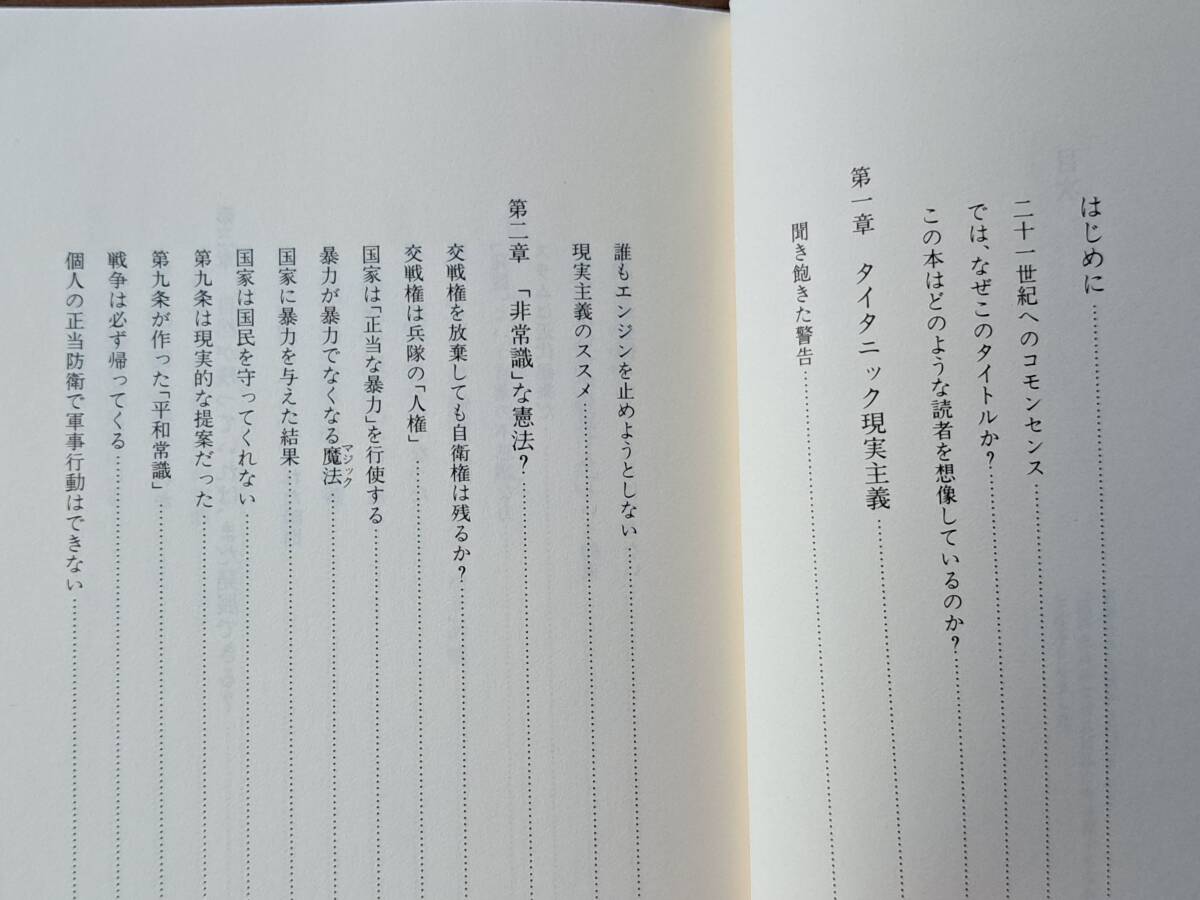 はじめに
二十一世紀へのコモンセンス
では、なぜこのタイトルか?
この本はどのような読者を想像しているのか?
第一章 タイタニック現実主義
聞き飽きた警告
誰もエンジンを止めようとしない
現実主義のススメ
第二章 「非常識」な憲法?
交戦権を放棄しても自衛権は残るか?
交戦権は兵隊の「人権」
国家は「正当な暴力」を行使する
暴力が暴力でなくなる魔法マジック
国家に暴力を与えた結果
国家は国民を守ってくれない
第九条は現実的な提案だった
第九条が作った「平和常識」
戦争は必ず帰ってくる
個人の正当防衛で軍事行動はできない